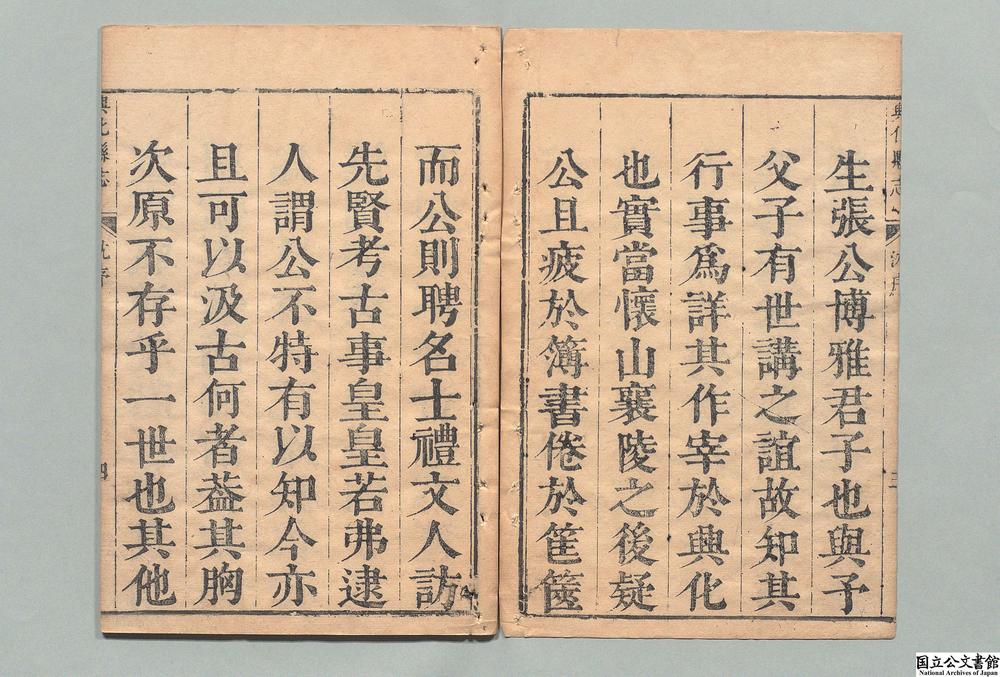 生張公博雅君子也與予
父子有世講之誼故知其
行事爲詳其作宰於興化
也實當懷山襄陵之後疑
公且疲於簿書倦於筐篋
而公則聘名士禮文人訪
先賢考古事皇皇若弗逮
人謂公不特有以知今亦
且可以汲古何者葢其胸
次原不存乎一世也其他
興化縣志
四
国立公文書館
National Archives of Japan